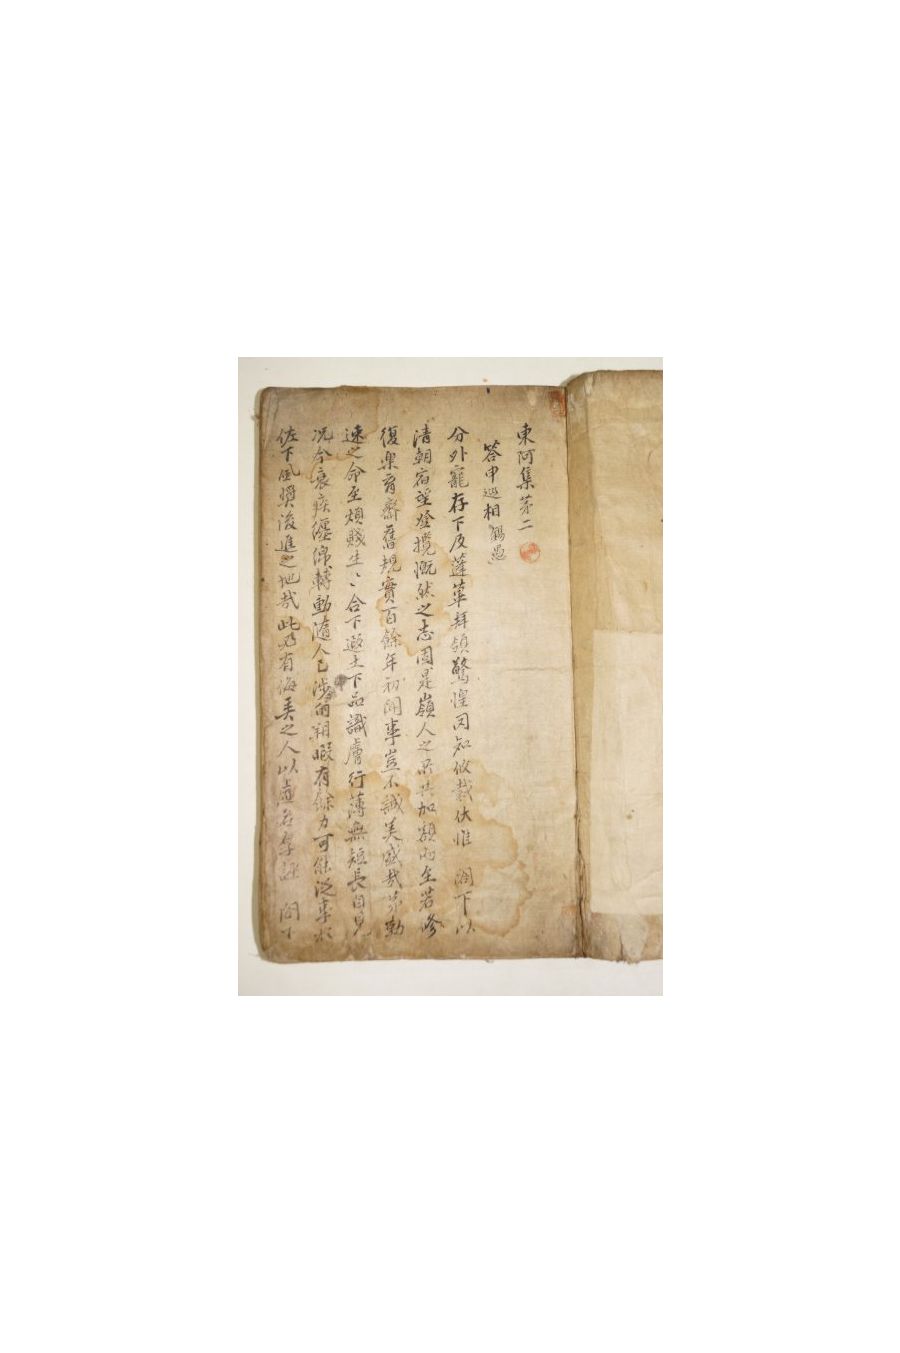 東阿集第二
答申巡相錫愚
分外寵存下及蓬蓽拜領驚惶罔知攸裁伏惟 閤下以
清朝宿望登攬慨然之志固是嶺人之所共加額而至若修
復樂育齋舊規實百餘年初開事豈不誠美盛哉第勤
速之命至煩賤生〻合下遐土下品識膚行薄無短長自見
况今衰疾纏綿轉動隨人已涉旬朔暇有餘力可能泛事於
佐下風奬後進之地哉此乃有侮美之人以虛名 閤下